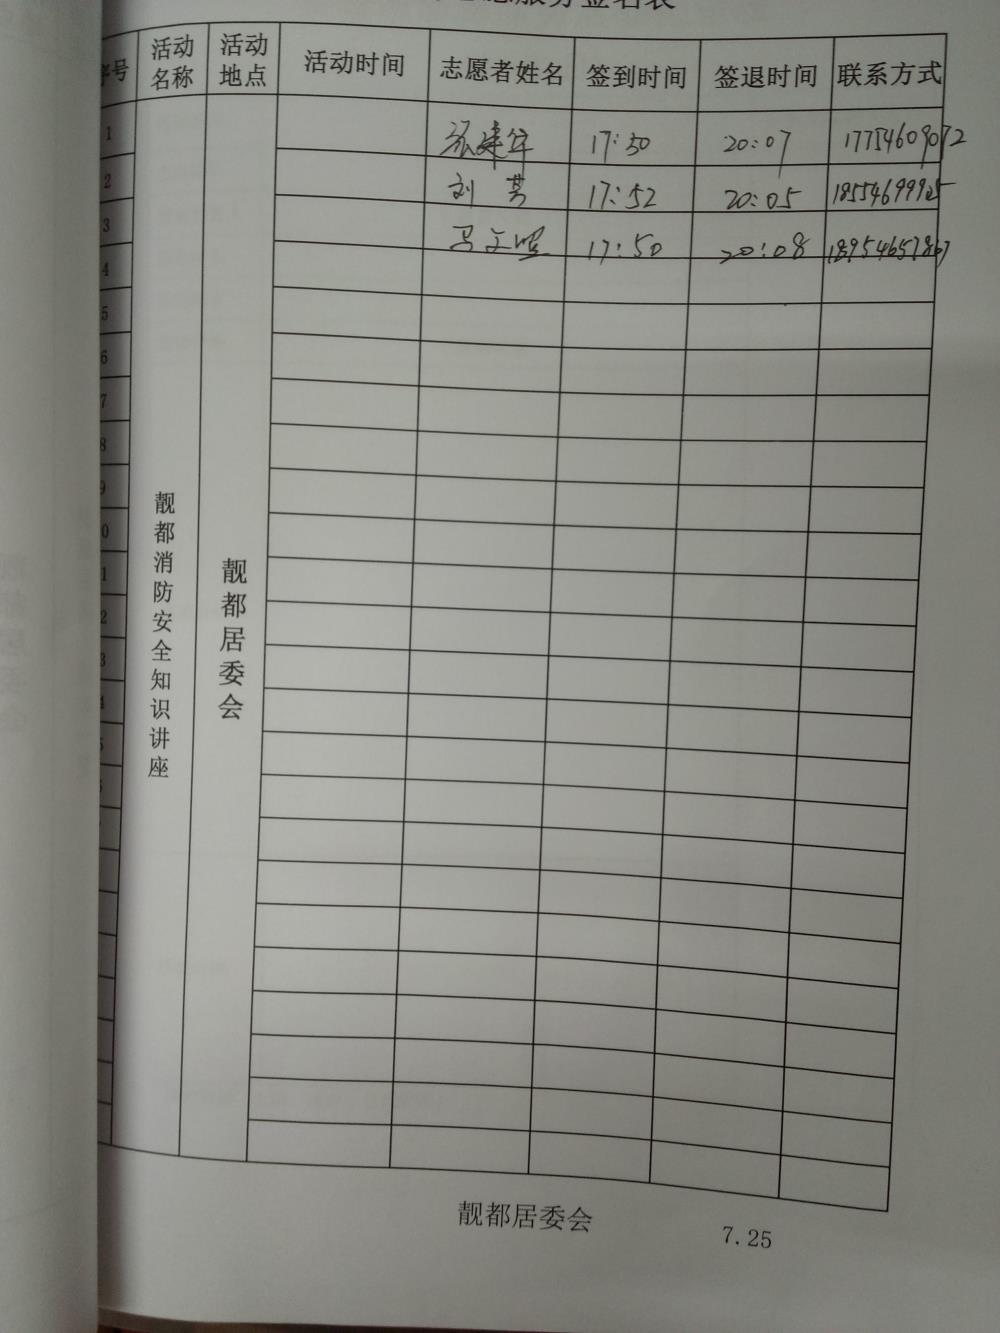 服务签名表
序号 活动名称 活动地点 活动时间 志愿者姓名 签到时间 签退时间 联系方式
1 张建华 17:50 20:07 17754609072
2 刘芳 17:52 20:05
3 马文照 17:50 20:08 18954657867
4
5
6
7
8
9
0
1
2
3
4
5
靓都消防安全知识讲座
靓都居委会
靓都居委会 7.25